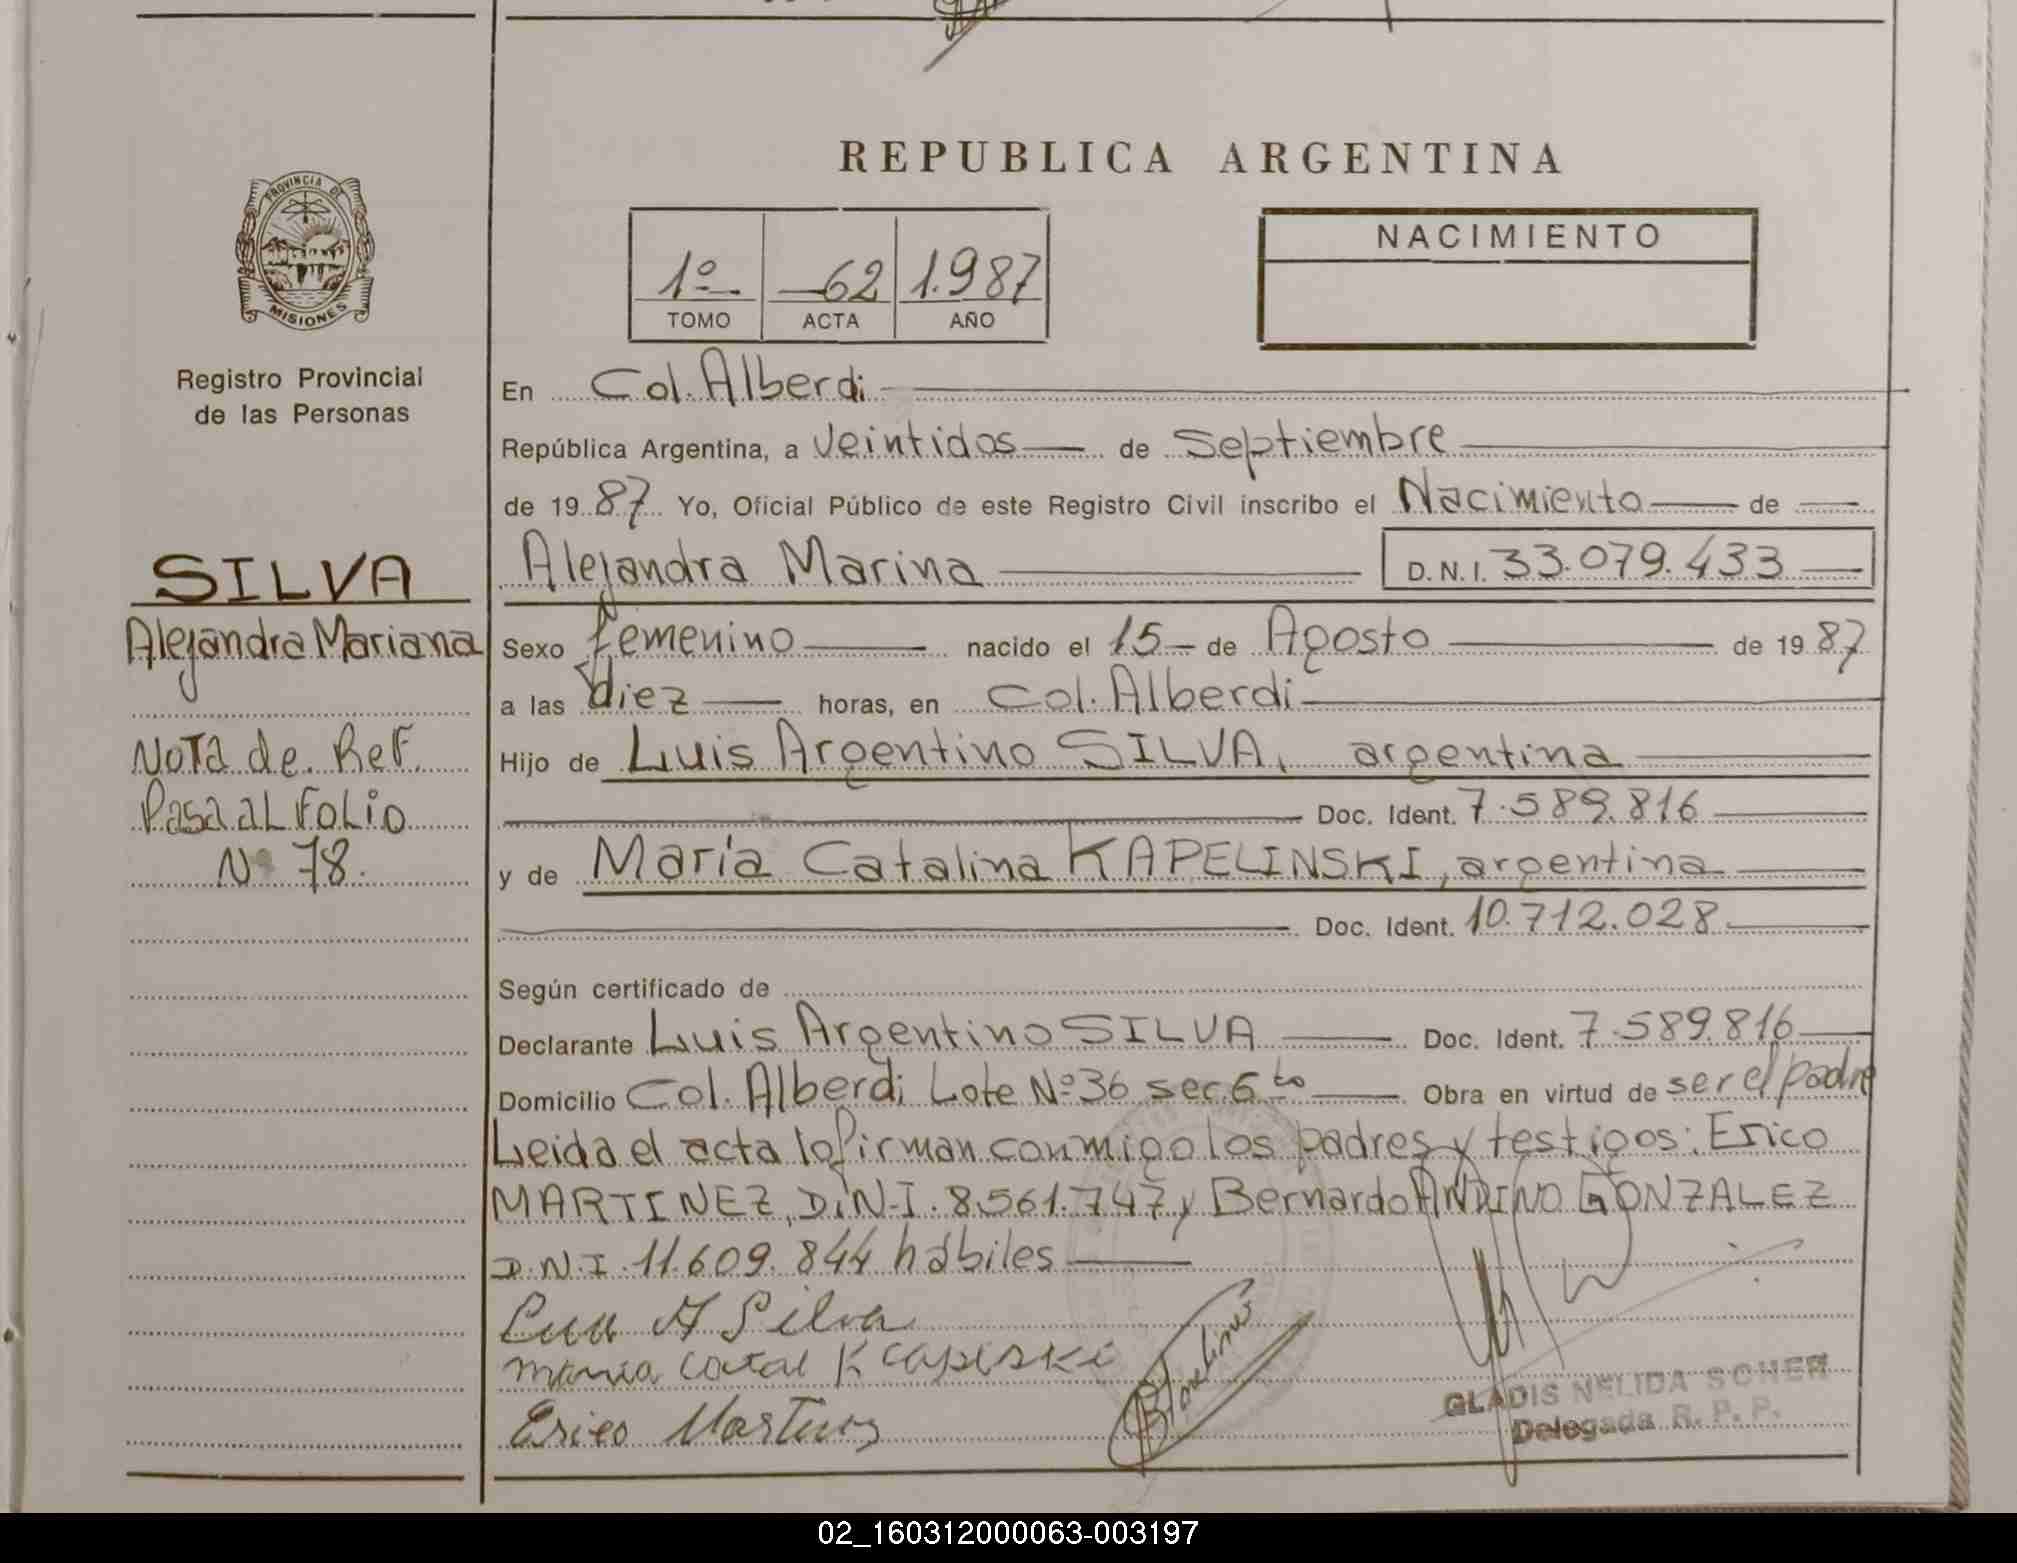 REPUBLICA ARGENTINA
PROVINCIA DE
MISIONES
Registro Provincial
de las Personas
1º 62 1.987
TOMO ACTA AÑO
NACIMIENTO
En Col. Alberdi
República Argentina, a veintidos de Septiembre
de 1987 Yo, Oficial Público de este Registro Civil inscribo el Nacimiento de
SILVA
Alejandra Mariana
Nota de Ref.
Pasa al Folio
Nº 78.
Alejandra Marina D.N.I. 33.079.433
Sexo femenino nacido el 15 de Agosto de 1987
a las diez horas, en Col. Alberdi
Hijo de Luis Argentino SILVA, argentina
Doc. Ident. 7.589.816
y de María Catalina KAPELINSKI, argentina
Doc. Ident. 10.712.028
Según certificado de
Declarante Luis Argentino SILVA Doc. Ident. 7.589.816
Domicilio Col. Alberdi Lote Nº 36 sec. 6to Obra en virtud de ser el padre
Leida el acta lo firman conmigo los padres y testigos: Erico
MARTINEZ, D.N.I. 8.561.747 y Bernardo ANDINO GONZALEZ
D.N.I. 11.609.844 hábiles
Luis A Silva
maria catal K
Erico Martinez
GLADIS NELIDA SCHER
Delegada R. P. P.
02_160312000063-003197